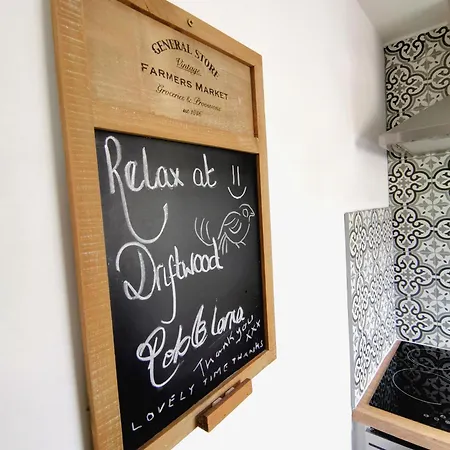 GENERAL STORE
Vintage
FARMERS MARKET
Groceries & Provisions
est 1886
Relax at
Driftwood
Thank you
xxx
LOVELY TIME THANKS